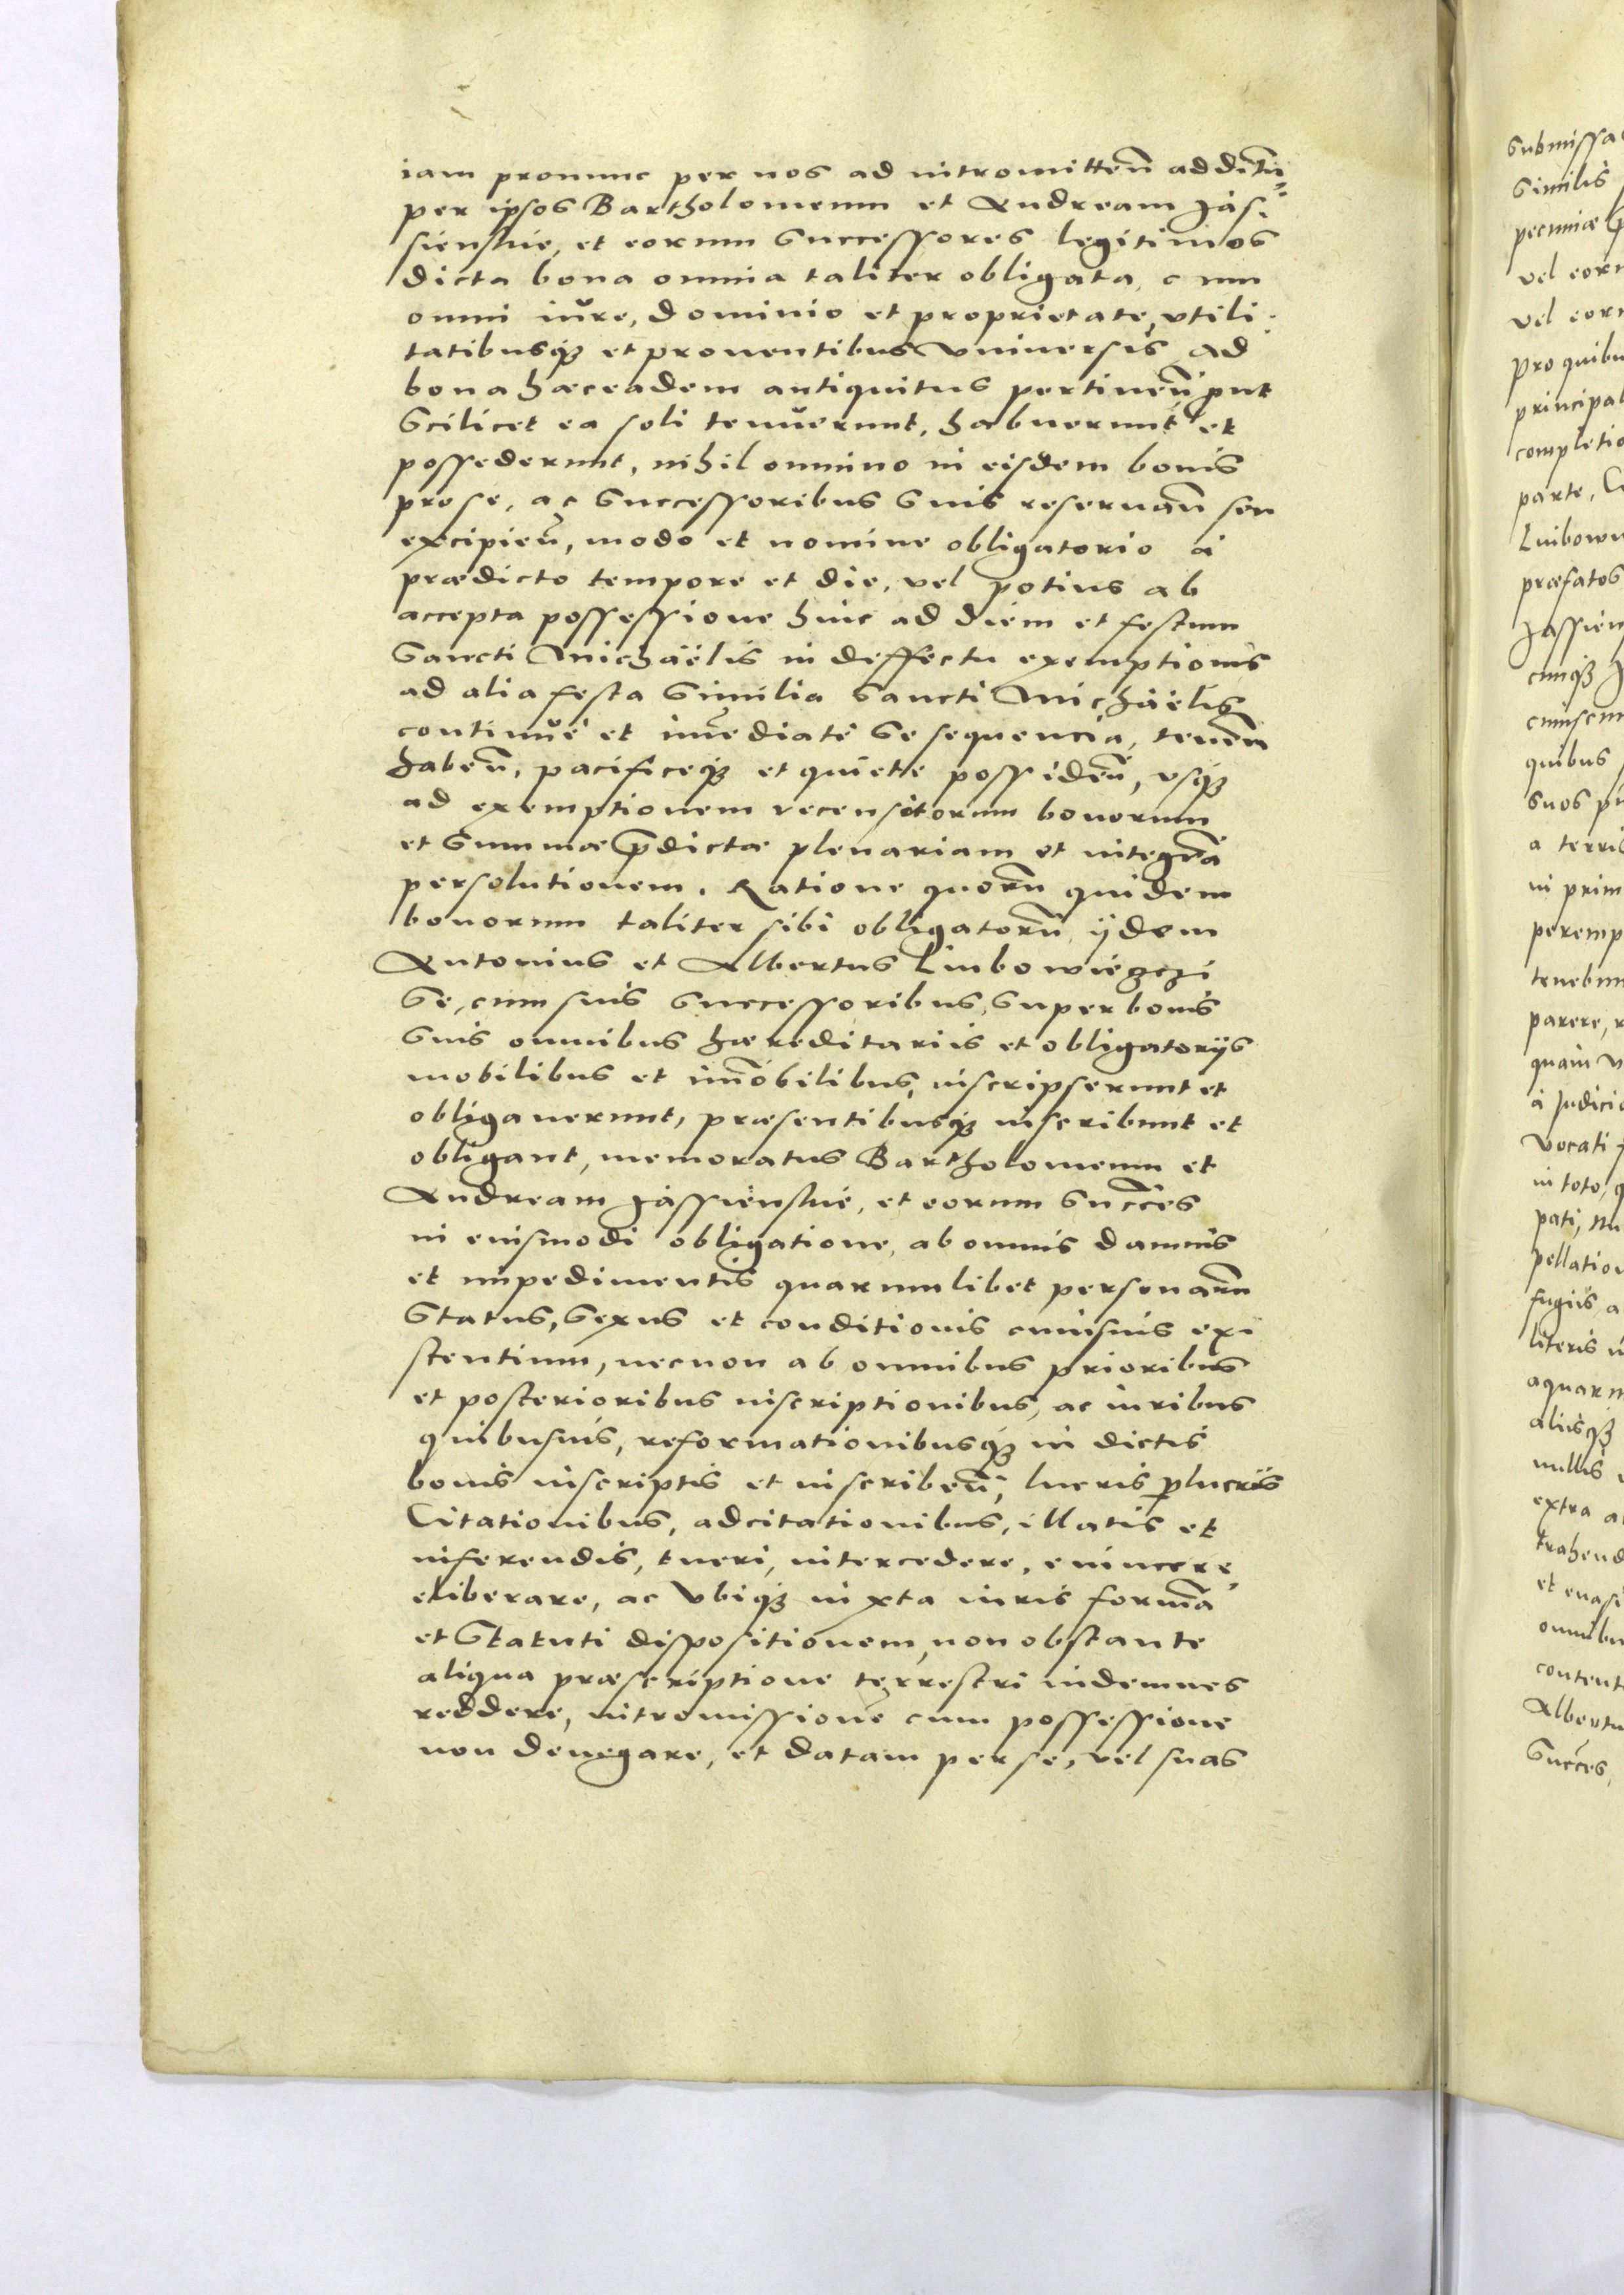 iam pronunc per nos ad intromitteñ additū
per ipsos Bartholomeum et Andream Jás-
sienskie, et eorum Successores legitimos
dicta bona omnia taliter obligata, cum
omni iŭre, dominio et proprietate, vtili-
tatibusq3 et prouentibus vniuersis, ad
bona hæceadem antiquitus pertineñ put
Scilicet ea soli tenŭerunt, habuerunt et
possederunt, nihil omnino in eisdem bonis
pro se, ac Successoribus Suis reseruañ seu
excipieñ, modo et nomine obligatorio à
prædicto tempore et die, vel potius ab
accepta possessione huic ad diem et festum
Sancti Michaëlis in deffectu exemptionis
ad alia festa Similia Sancti Michaëlis
continŭè et im̄ediatè Se sequencia, teneñ
habeñ, pacificeq3 et quietè possideñ, vsq3
ad exemptionem recensitorum bonorum
et Summæ p̄dictæ plenariam et integrā
persolutionem. Ratione quorū quidem
bonorum taliter sibi obligatorū ijdem
Antonius et Albertus Luibowieẓcẓi
Se, cum suis Successoribus, Super bonis
Suis omnibus hæreditariis et obligatorijs
mobilibus et im̄obilibus, inscripserunt et
obligauerunt, præsentibusq3 inscribunt et
obligant, memoratus Bartholomeum et
Andream Jássienskie, et eorum Succ̄es
in eiusmodi obligatione, ab omnis damnis
et impedimentis quarumlibet personarū
Status, Sexus et conditionis cuiusuis exi-
stentium, necnon ab omnibus prioribus
et posterioribus inscriptionibus, ac iuribus
quibusuis, reformationibusq3 in dictis
bonis inscriptis et inscribeñ, lucris plucris
Citationibus, adcitationibus, illatis et
inferendis, tueri, intercedere, euincere,
eliberare, ac Vbiq3 iuxta iuris formā
et Statuti dispositionem, non obstante
aliqua præscriptione terrestri indemnes
reddere, intromissionē cum possessione
non denegare, et datam per se, vel suas
Submissa
Similis
pecuniæ
vel eoru
vel eoru
pro quibu
principal
completio
parte,
Luibowi
præfatos
Jassien
cumq3
cuiuscun
quibus
suos
a terris
in prim
peremp
tenebun
parere,
quam
à Judicio
Vocati
in toto,
pati,
pellation
fugiis
literis
aquarum
aliisq3
nullis
extra
trahend
et euasi
omnibu
contenti
Albertu
Succ̄es,